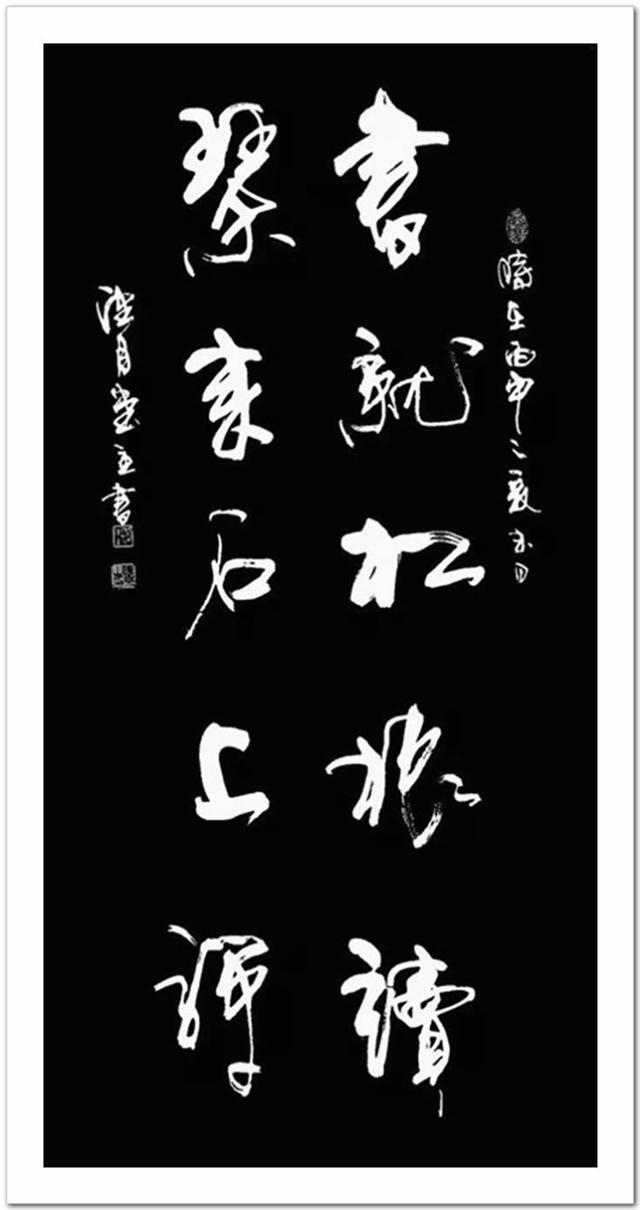 時在丙申之夏日
書就松根讀
琴來石上彈
月堂主書